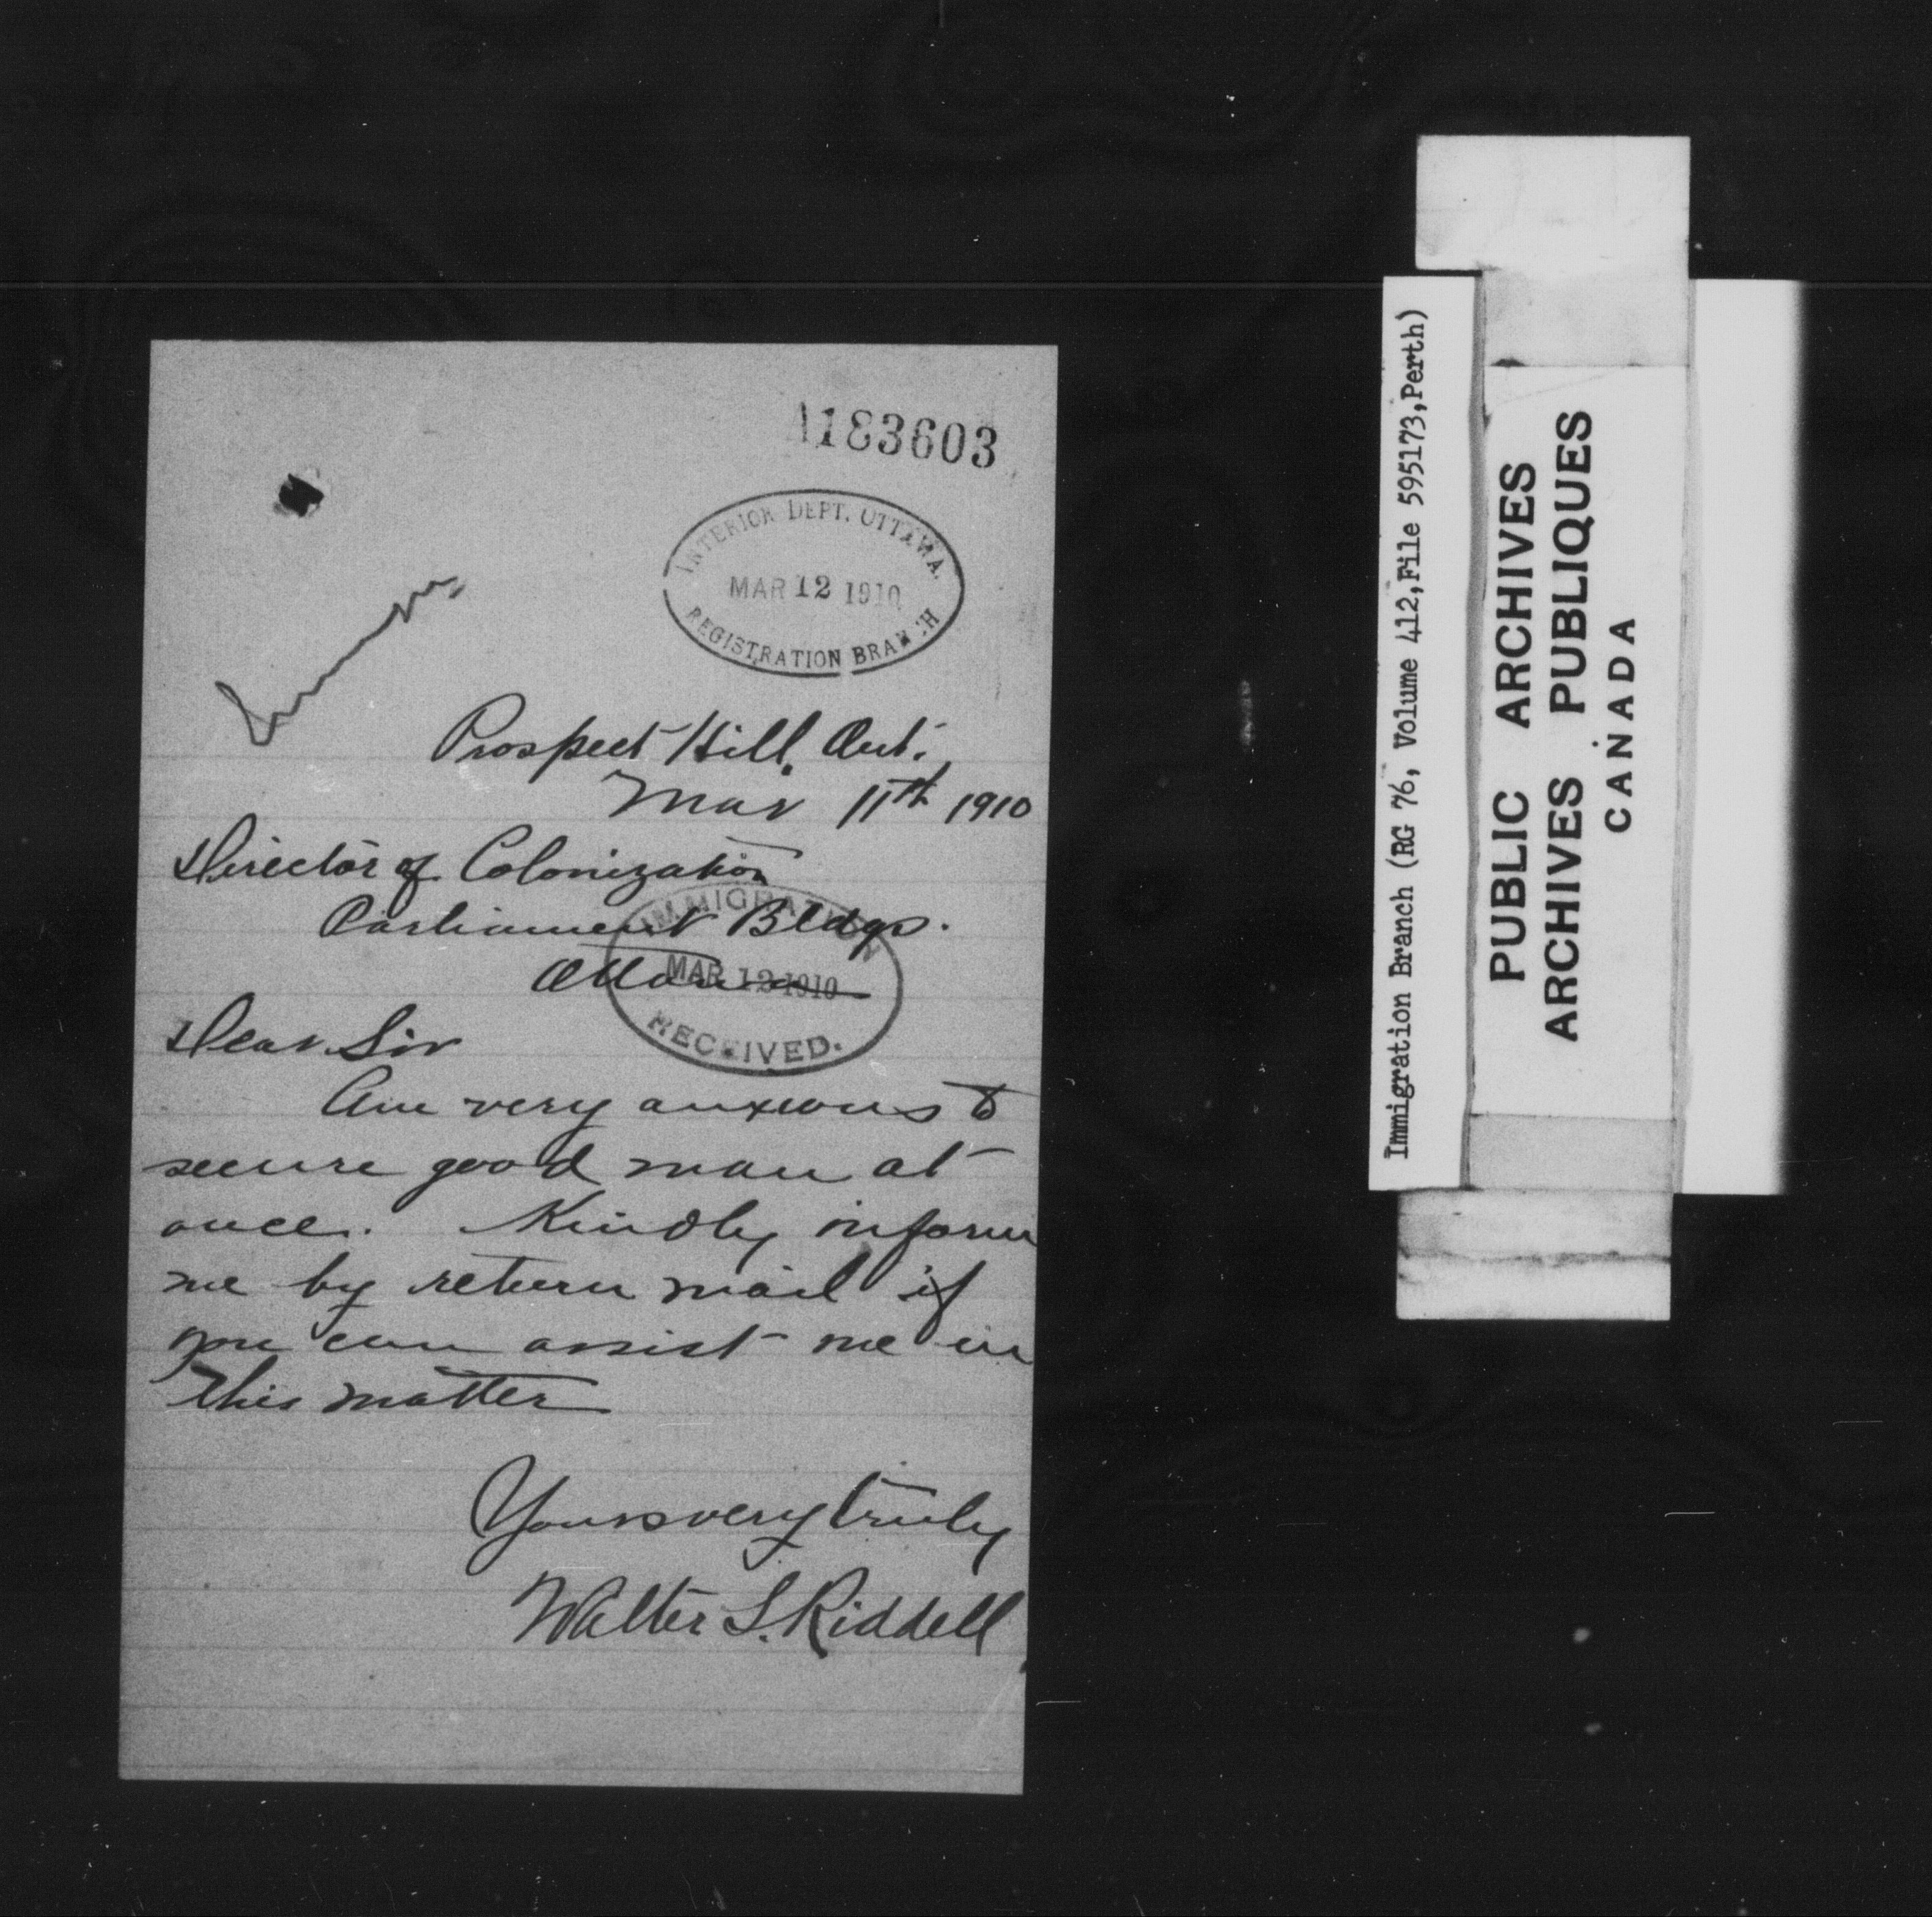 1183603
INTERIOR DEPT. OTTAWA.
MAR 12 1910
REGISTRATION BRANCH
Prospect Hill, Ont.
Mar 11th 1910
Director of Colonization
Parliament Bldgs.
Ottawa
IMMIGRATION
MAR 12 1910
RECEIVED.
Dear Sir
Am very anxious to
secure good man at
once. Kindly inform
me by return mail if
you can assist me in
this matter
Yours very truly
Walter S. Riddell
Immigration Branch (RG 76, Volume 412, File 595173, Perth)
PUBLIC ARCHIVES
ARCHIVES PUBLIQUES
CANADA